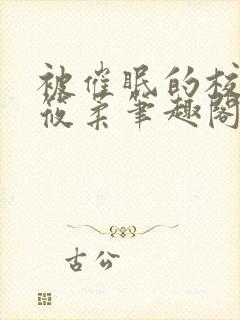 被催眠的校
筱柔笔趣阁
古公